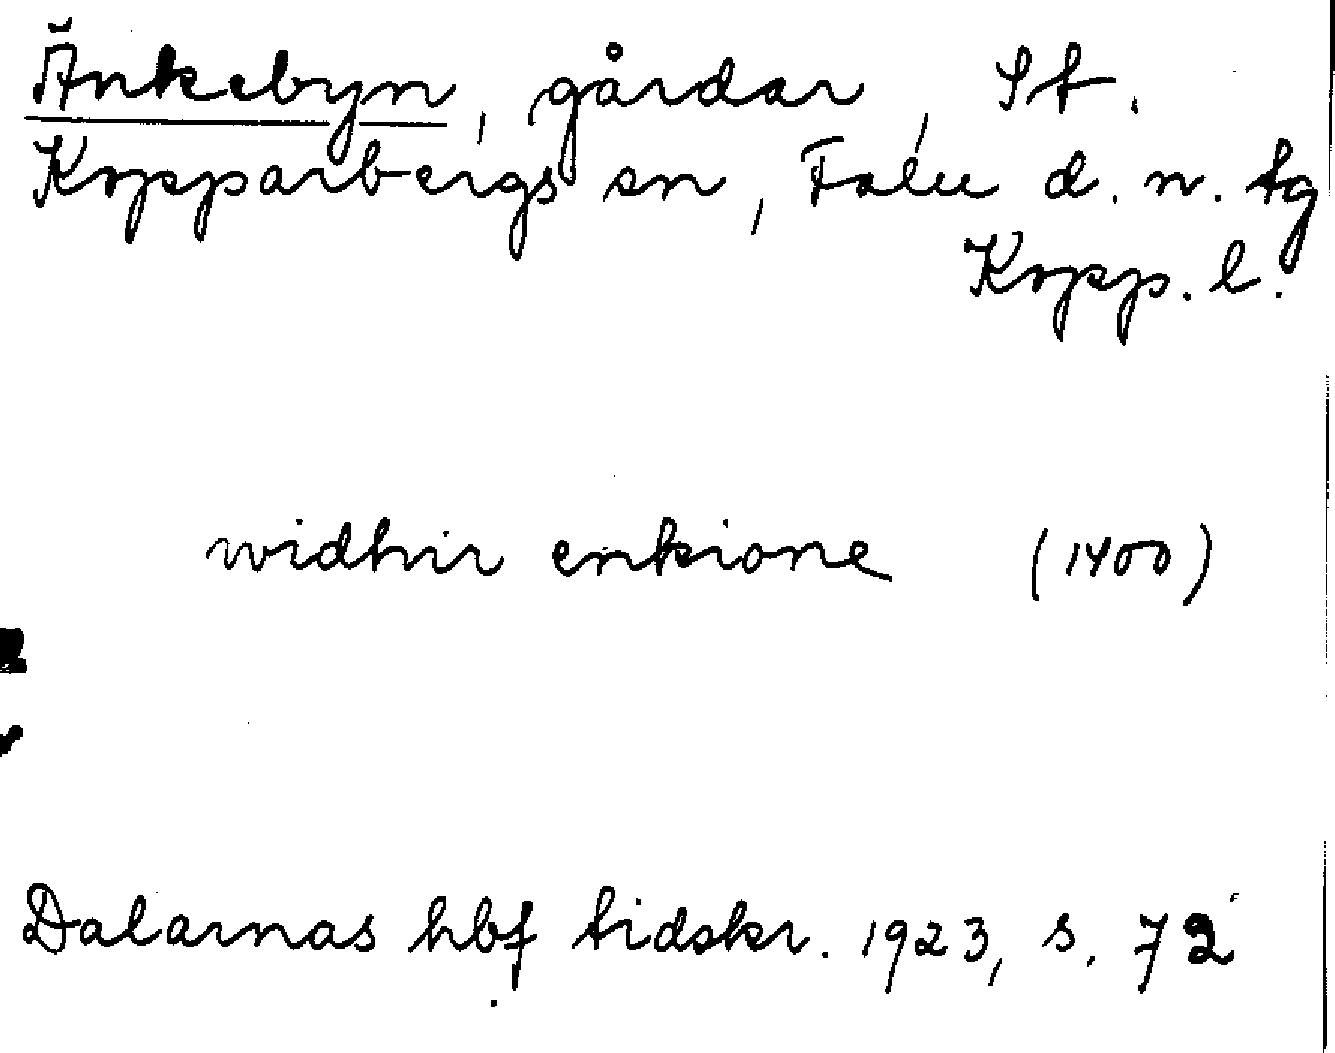 Änkebyn, gårdar, St.
Kopparbergs sn, Falu d. n. tg
Kopp. l.
widhir enkione (1400)
Dalarnas hbf tidskr. 1923, s. 72